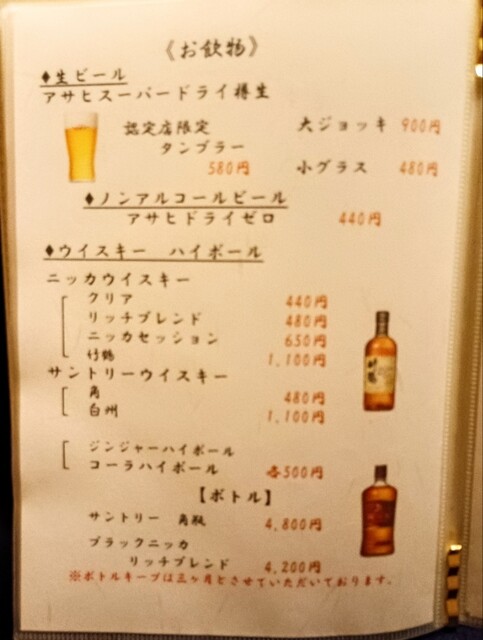 《お飲物》
◆生ビール
アサヒスーパードライ樽生
認定店限定
タンブラー
580円
大ジョッキ 900円
小グラス 480円
◆ノンアルコールビール
アサヒドライゼロ 440円
◆ウイスキー ハイボール
ニッカウイスキー
クリア 440円
リッチブレンド 480円
ニッカセッション 650円
竹鶴 1,100円
サントリーウイスキー
角 480円
白州 1,100円
ジンジャーハイボール
コーラハイボール 各500円
【ボトル】
サントリー 角瓶 4,800円
ブラックニッカ
リッチブレンド 4,200円
※ボトルキープは三ヶ月とさせていただいております。
竹鶴